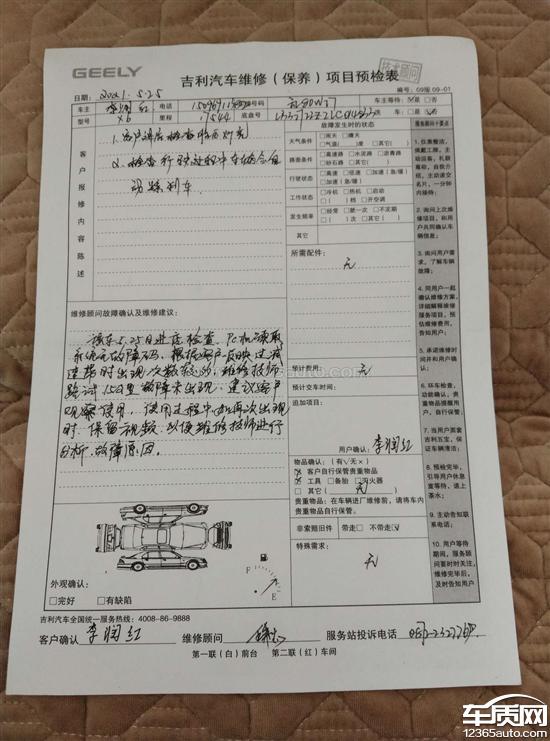 GEELY
技术顾问
吉利汽车维修（保养）项目预检表
日期：2021.5.25
编号：09版 09-01
车主 李润红 电话
车主等待：☑是 □否
型号 X6 里程 17544 底盘号
洗车：□是
客户报修内容陈述
1. 客户进店检查
2. 检查行驶过程中车辆会自动踩刹车
故障发生时的状态
天气条件 □雨天 □晴天
□气温( )度 □其它( )
路面条件 □高速路 □水泥路 □沥青路
□砂石路 □其它( )
行驶状态 □高速 □低速 □加速(急/缓)
□减速(急/缓)
工作状态 □冷机 □热机 □启动
□( )档 □开空调
发生频率 □经常 □就一次 □不定期
□( )次 □其它( )
其它
服务顾问十要点
1. 仪表整洁，佩戴工牌，主动迎客，礼貌敬和，自我介绍，主动递交名片，一分钟内接待；
2. 询问上次维修项目，和用户共同确认车辆信息；
3. 询问用户需求，了解车辆故障；
4. 同用户一起确认维修方案，详细解说维修服务项目，预估维修费用，告知用户；
5. 承诺维修时间并和用户确认；
6. 环车检查，功能确认，贵重物品提醒用户，自行保管；
7. 当用户面套吉利五宝，保证车辆清洁；
8. 预检完毕，引导用户休息室等待，递上茶水；
9. 主动告知联系电话；
10. 用户等待期间，服务顾问要时时关注，维修完毕后，及时告知用户
所需配件：
无
维修顾问故障确认及维修建议：
该车5.25日进店检查，PC机读取
系统无故障码，根据客户反映过减
速带时出现次数较多，维修技师
路试15公里故障未出现，建议客户
观察使用，使用过程中如再次出现
时，保留视频，以便维修技师进行
分析故障原因。
预计费用：无
预计交车时间：
追加项目：
用户确认：李润红
物品确认：(有√无×)
客户自行保管贵重物品
工具 □备胎 灭火器
□其它( 无 )
贵重物品：在车辆进厂维修前，请将车内贵重物品自行保管。
非索赔旧件 带走□ 不带走☑
特殊需求：
无
F
E
外观确认：
□完好 □有缺陷
吉利汽车全国统一服务热线：4008-86-9888
客户确认 李润红 维修顾问 服务站投诉电话
第一联（白）前台 第二联（红）车间
车质网
12365auto.com